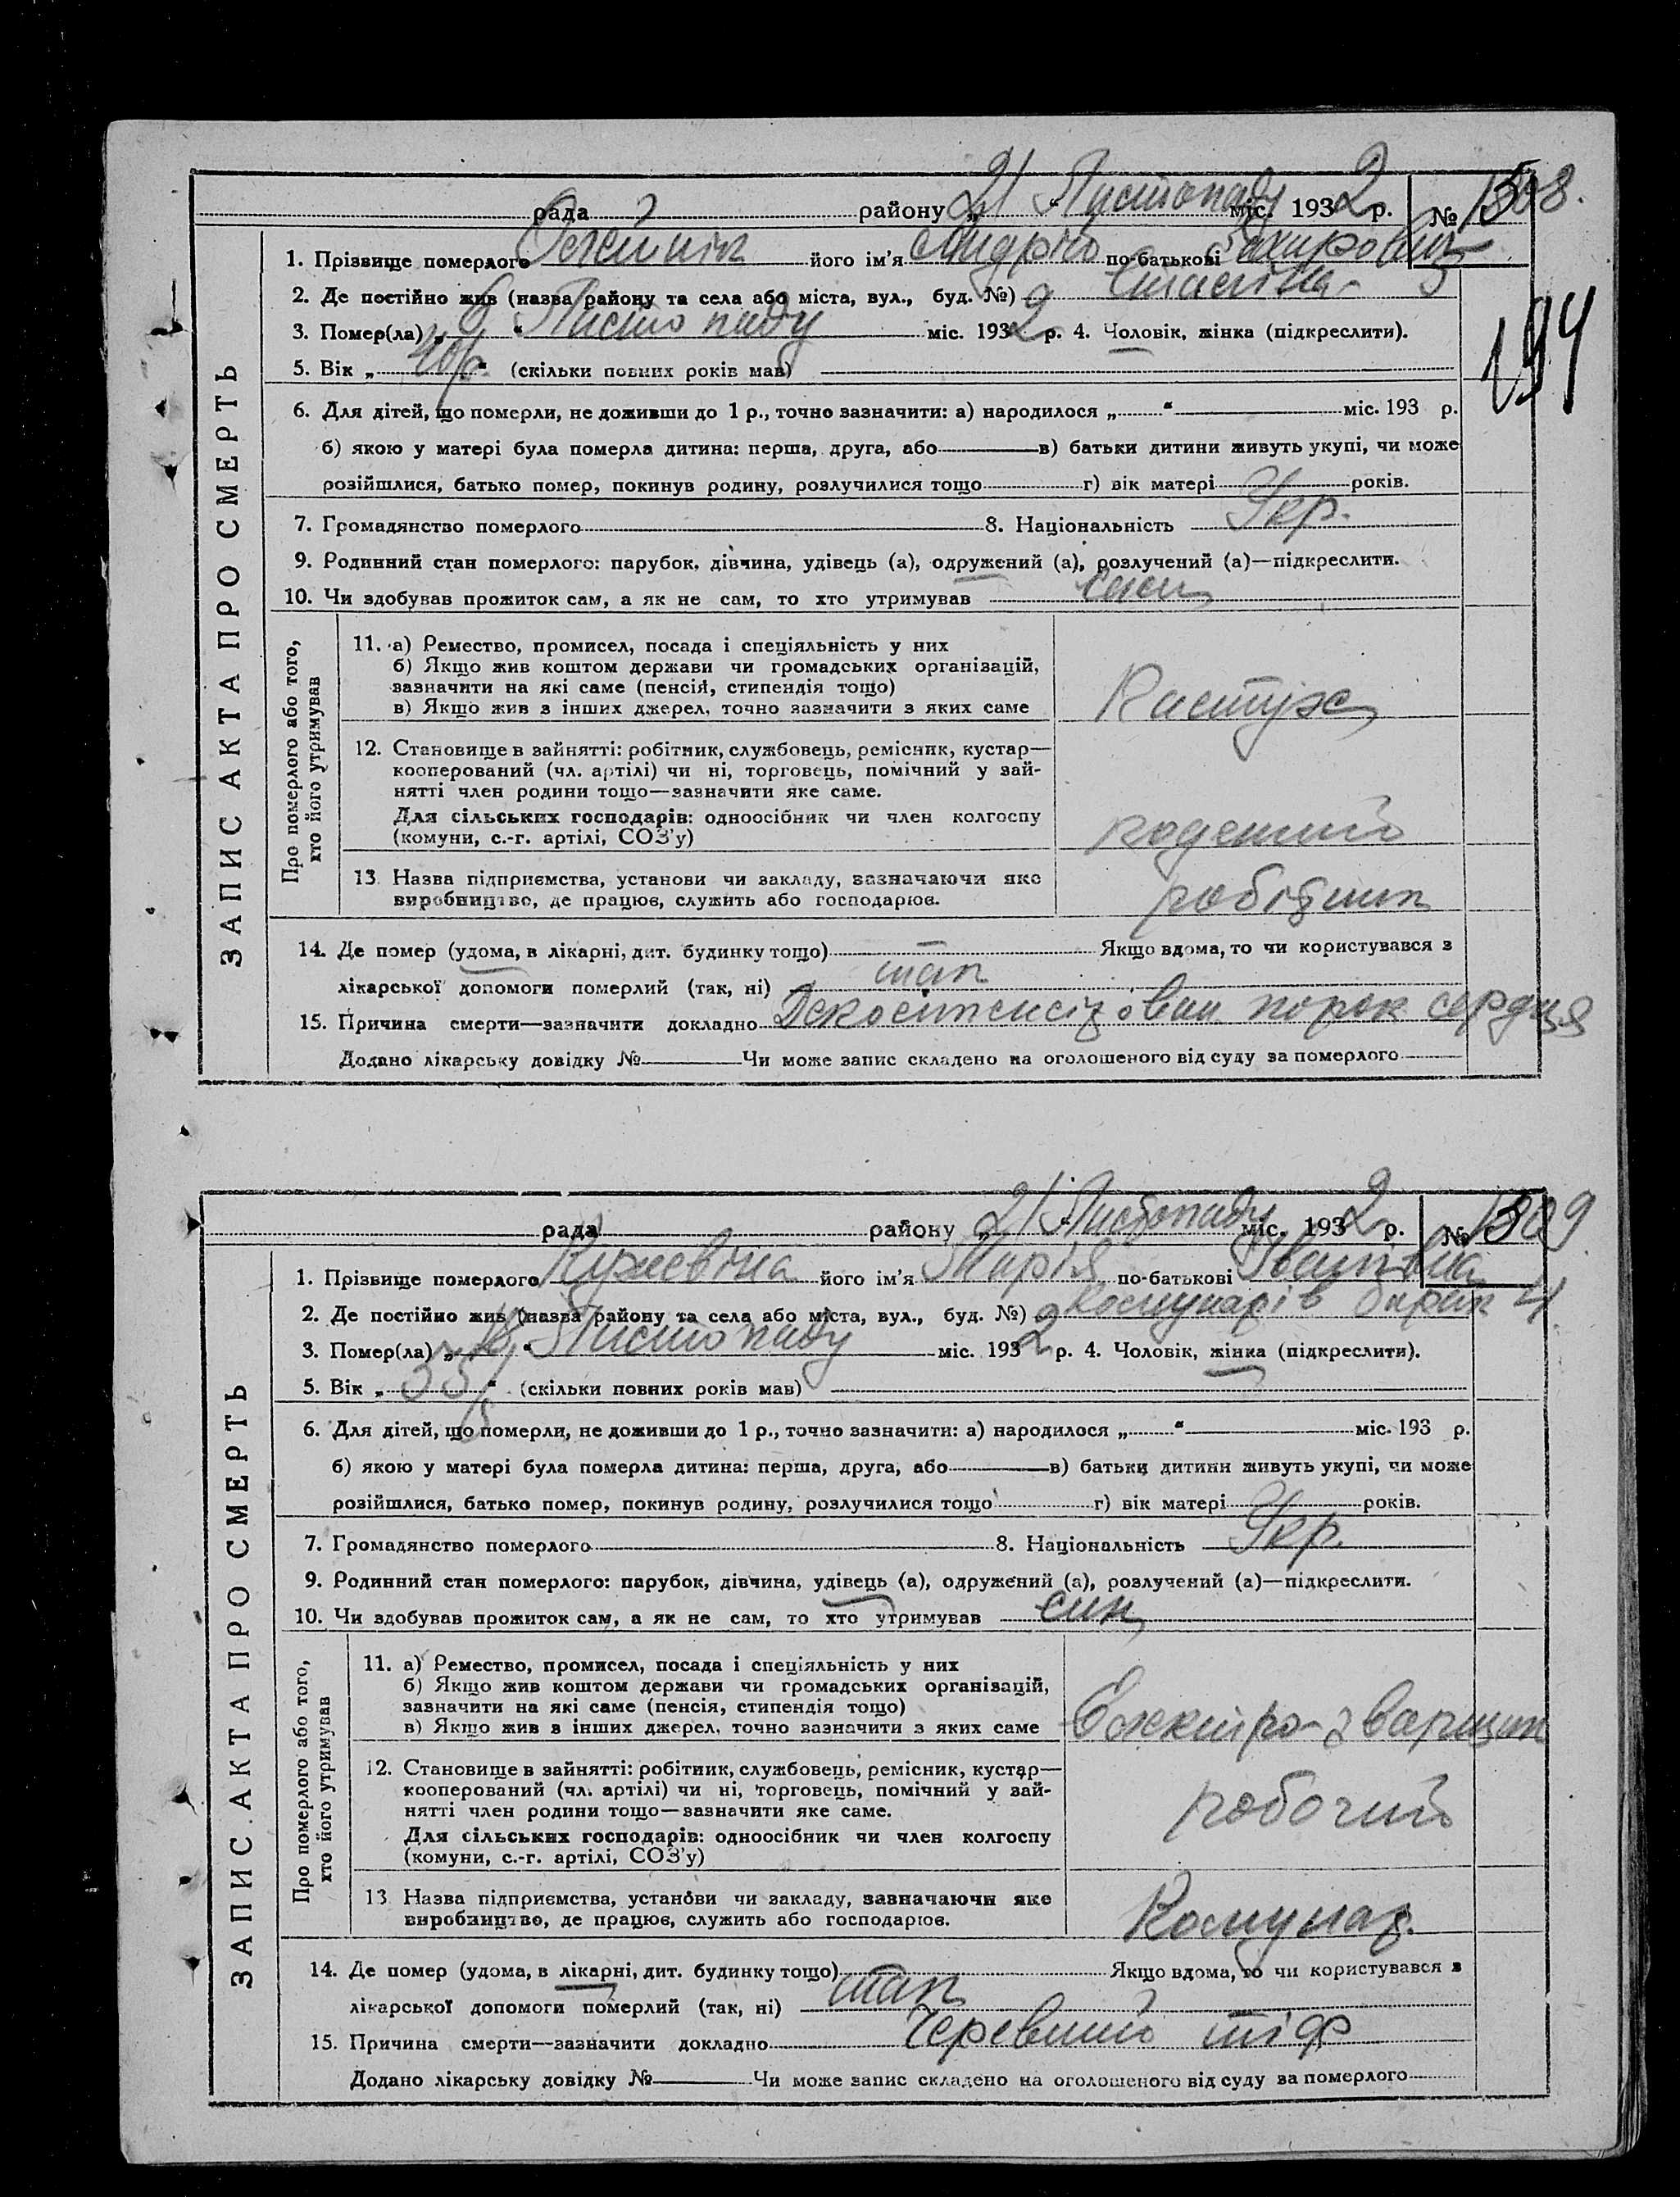 рада району „21“ Листопаду міс. 1932 р. № 1308.
194
ЗАПИС АКТА ПРО СМЕРТЬ
1. Прізвище померлого його ім'я Андрій по-батькові
2. Де постійно жив (назва району та села або міста, вул., буд. №) Сталіна 5
3. Помер(ла) „6“ Листопаду міс. 1932 р. 4. Чоловік, жінка (підкреслити).
5. Вік „40р.“ (скільки повних років мав)
6. Для дітей, що померли, не доживши до 1 р., точно зазначити: а) народилося „ “ міс. 193 р.
б) якою у матері була померла дитина: перша, друга, або в) батьки дитини живуть укупі, чи може
розійшлися, батько помер, покинув родину, розлучилися тощо г) вік матері років.
7. Громадянство померлого 8. Національність Укр.
9. Родинний стан померлого: парубок, дівчина, удівець (а), одружений (а), розлучений (а)—підкреслити.
10. Чи здобував прожиток сам, а як не сам, то хто утримував сам
Про померлого або того, хто його утримував
11. а) Ремество, промисел, посада і спеціяльність у них
б) Якщо жив коштом держави чи громадських організацій,
зазначити на які саме (пенсія, стипендія тощо)
в) Якщо жив з інших джерел, точно зазначити з яких саме
12. Становище в зайнятті: робітник, службовець, ремісник, кустар—
кооперований (чл. артілі) чи ні, торговець, помічний у зай-
нятті член родини тощо—зазначити яке саме.
Для сільських господарів: одноосібник чи член колгоспу
(комуни, с.-г. артілі, СОЗ'у)
13. Назва підприємства, установи чи закладу, зазначаючи яке робітник
виробництво, де працює, служить або господарює.
14. Де помер (удома, в лікарні, дит. будинку тощо) Якщо вдома, то чи користувався з
лікарської допомоги померлий (так, ні) так
15. Причина смерти—зазначити докладно порок сердця
Додано лікарську довідку № Чи може запис складено на оголошеного від суду за померлого
рада району „21“ Листопаду міс. 1932 р. № 1309
ЗАПИС АКТА ПРО СМЕРТЬ
1. Прізвище померлого його ім'я Марія по-батькові Івановна
2. Де постійно жив (назва району та села або міста, вул., буд. №) Комунарів барак 4
3. Помер(ла) Листопаду міс. 1932 р. 4. Чоловік, жінка (підкреслити).
5. Вік „ “ (скільки повних років мав)
6. Для дітей, що померли, не доживши до 1 р., точно зазначити: а) народилося „ “ міс. 193 р.
б) якою у матері була померла дитина: перша, друга, або в) батьки дитини живуть укупі, чи може
розійшлися, батько помер, покинув родину, розлучилися тощо г) вік матері років.
7. Громадянство померлого 8. Національність Укр.
9. Родинний стан померлого: парубок, дівчина, удівець (а), одружений (а), розлучений (а)—підкреслити.
10. Чи здобував прожиток сам, а як не сам, то хто утримував син
Про померлого або того, хто його утримував
11. а) Ремество, промисел, посада і спеціяльність у них
б) Якщо жив коштом держави чи громадських організацій,
зазначити на які саме (пенсія, стипендія тощо)
в) Якщо жив з інших джерел, точно зазначити з яких саме Електро-зварщик
12. Становище в зайнятті: робітник, службовець, ремісник, кустар—
кооперований (чл. артілі) чи ні, торговець, помічний у зай- робочий
нятті член родини тощо—зазначити яке саме.
Для сільських господарів: одноосібник чи член колгоспу
(комуни, с.-г. артілі, СОЗ'у)
13. Назва підприємства, установи чи закладу, зазначаючи яке Комунар.
виробництво, де працює, служить або господарює.
14. Де помер (удома, в лікарні, дит. будинку тощо) Якщо вдома, то чи користувався з
лікарської допомоги померлий (так, ні) так
15. Причина смерти—зазначити докладно Черевний тіф
Додано лікарську довідку № Чи може запис складено на оголошеного від суду за померлого